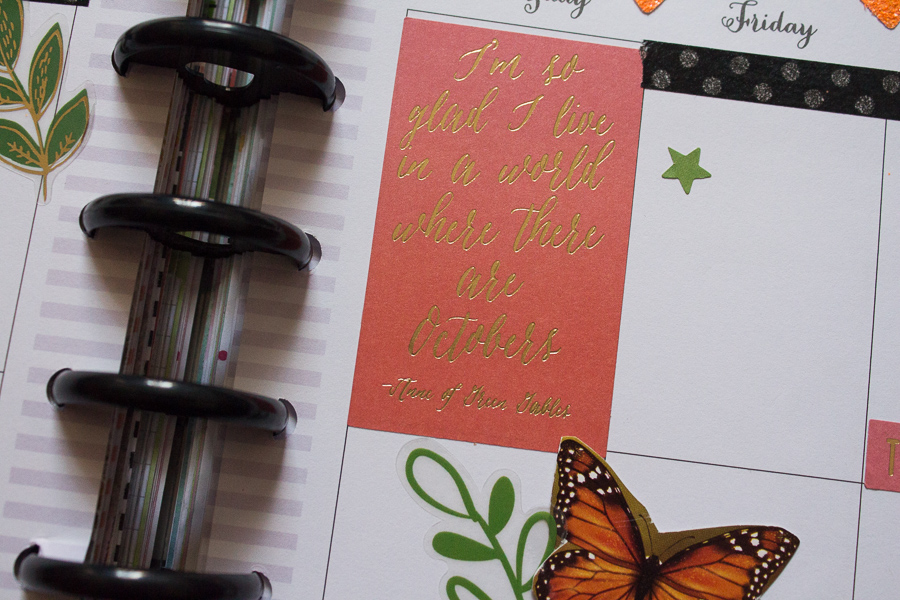 Friday
I'm so
glad I live
in a world
where there
are
Octobers
-Anne of Green Gables